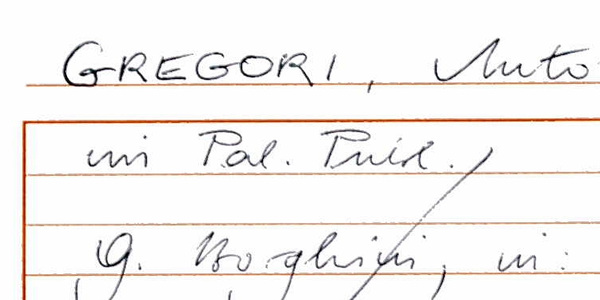 GREGORI, Anto
in Pal. Publ.
G. Borghini, in: